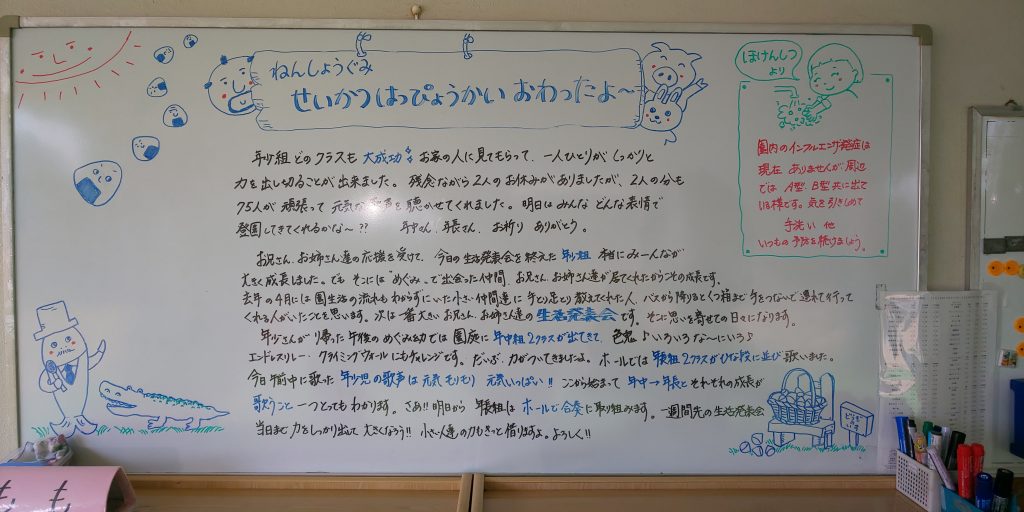 ねんしょうぐみ
せいかつはっぴょうかい おわったよ～
ほけんしつ
より
園内のインフルエンザ発症は
現在 ありませんが 周辺
では A型、B型 共に出て
いる様です。気を引きしめて
手洗い 他
いつもの 予防を続けましょう。
年少組 どのクラスも 大成功 お家の人に見てもらって、一人ひとりが しっかりと
力を出し切ることが出来ました。残念ながら2人のお休みがありましたが、2人の分も
75人が 頑張って 元気な歌声を聴かせてくれました。明日は みんな どんな表情で
登園してきてくれるかな～?? 年中さん、年長さん、お祈り ありがとう。
お兄さん、お姉さん達の応援を受けて、今日の生活発表会を終えた 年少組 本当にみーんなが
大きく成長しました。でも そこには"めぐみ"で出会った仲間、お兄さん、お姉さん達が居てくれたからこその成長です。
去年の4月には園生活の流れもわからずにいた小さい仲間達に 手とり足とり 教えてくれた人、バスから降りるとくつ箱まで 手をつないで連れて行って
くれる人がいたことを思います。次は 一番大きいお兄さん、お姉さん達の 生活発表会 です。そこに思いを寄せての日々になります。
年少さんが 帰った午後のめぐみ幼では 園庭に 年中組2クラスが出てきて、色鬼♪いろいろな～にいろ♪
エンドレスリレー クライミングウォールにもチャレンジです。だいぶ、力がついてきましたよ。ホールでは 年長組2クラスがひな段に並び 歌いました。
今日午前中に歌った 年少児の歌声は 元気もりもり 元気いっぱい!! ここから始まって 年中→年長と それぞれの成長が
歌うこと一つとっても わかります。さあ!! 明日から 年長組は ホールで合奏に取り組みます。一週間先の 生活発表会
当日まで 力をしっかり出して 大きくなろう!! 小さい人達の力もきっと借りますよ。よろしく!!